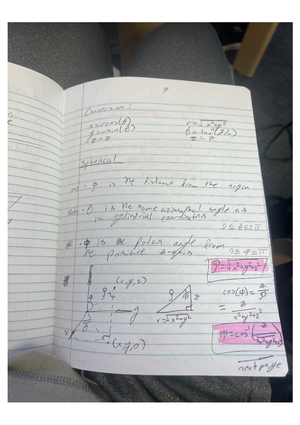 Conversion:
x=rcos(θ) r=√x²+y²
y=rsin(θ) θ=tan⁻¹(y/x)
z=z z=z
Spherical
ρ is the distance from the origin
θ is the same azimuthal angle as
in cylindrical coordinates
0≤θ≤2π
Φ is the polar angle from
the positive z-axis 0≤Φ≤π
ρ=√x²+y²+z²
(x,y,z)
cos(Φ)=z/ρ
r=√x²+y²
= z/√x²+y²+z²
Φ=cos⁻¹(z/√x²+y²+z²)
(x,y,0)
next page